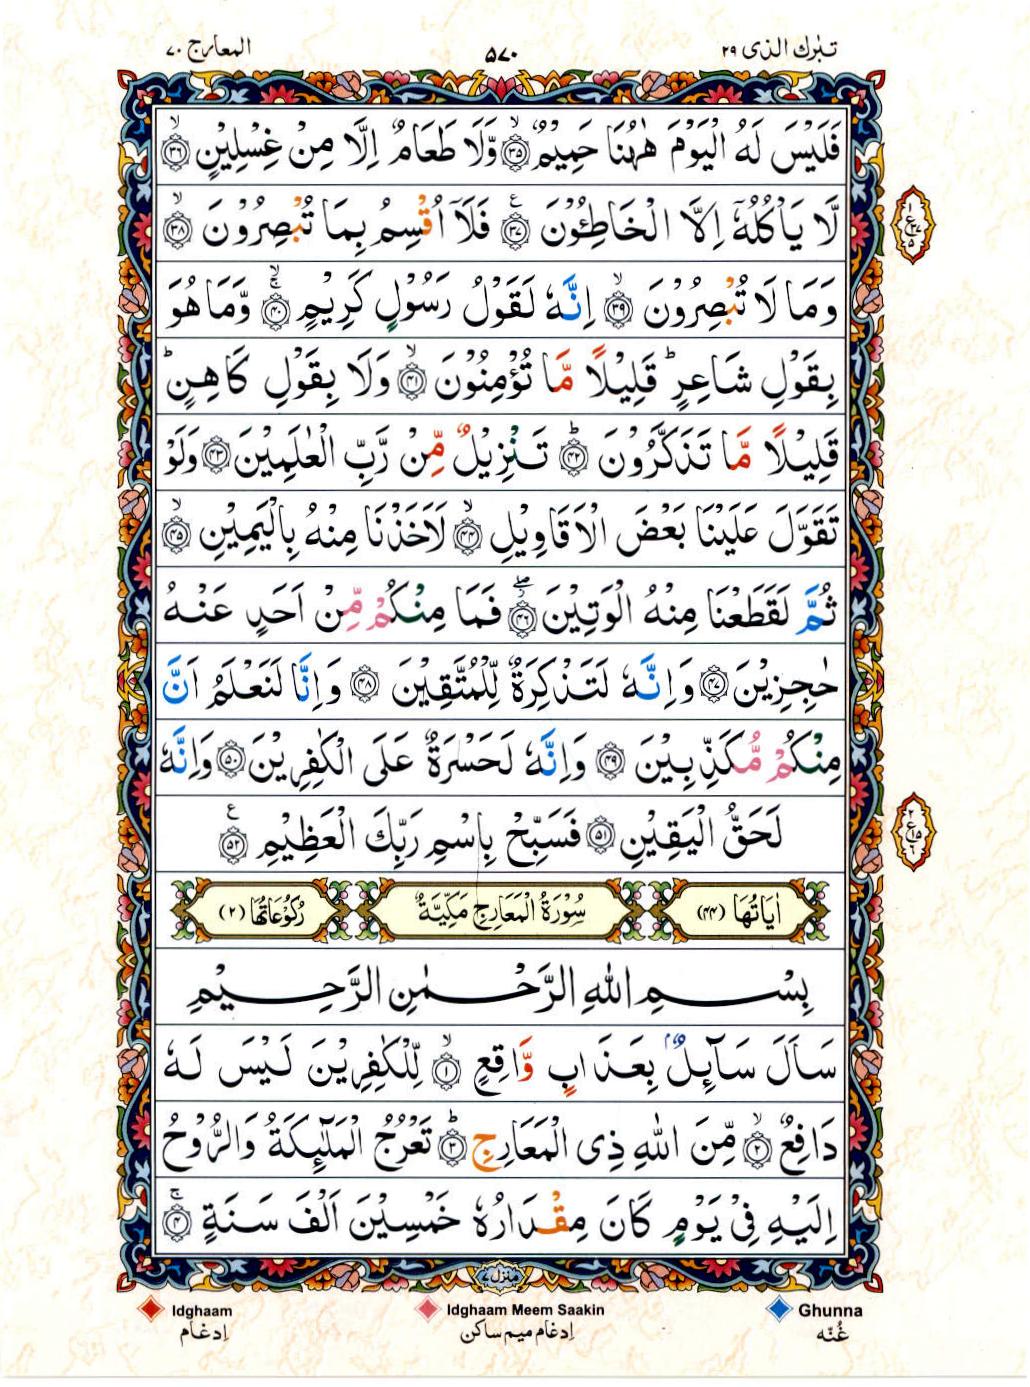 تبٰرك الذى ٢٩
٥٧٠
المعارج ٧٠
فَلَيْسَ لَهُ الْيَوْمَ هٰهُنَا حَمِيْمٌ ۙ﴿۳۵﴾ وَّلَا طَعَامٌ اِلَّا مِنْ غِسْلِيْنٍ ۙ﴿۳۶﴾
لَّا يَاْكُلُهٗۤ اِلَّا الْخَاطِـُٔوْنَ ﴿۳۷﴾ فَلَاۤ اُقْسِمُ بِمَا تُبْصِرُوْنَ ۙ﴿۳۸﴾
وَمَا لَا تُبْصِرُوْنَ ۙ﴿۳۹﴾ اِنَّهٗ لَقَوْلُ رَسُوْلٍ كَرِيْمٍ ۙۚ﴿۴۰﴾ وَّمَا هُوَ
بِقَوْلِ شَاعِرٍ ؕ قَلِيْلًا مَّا تُؤْمِنُوْنَ ۙ﴿۴۱﴾ وَلَا بِقَوْلِ كَاهِنٍ ؕ
قَلِيْلًا مَّا تَذَكَّرُوْنَ ؕ﴿۴۲﴾ تَنْزِيْلٌ مِّنْ رَّبِّ الْعٰلَمِيْنَ ﴿۴۳﴾ وَلَوْ
تَقَوَّلَ عَلَيْنَا بَعْضَ الْاَقَاوِيْلِ ۙ﴿۴۴﴾ لَاَخَذْنَا مِنْهُ بِالْيَمِيْنِ ۙ﴿۴۵﴾
ثُمَّ لَقَطَعْنَا مِنْهُ الْوَتِيْنَ ۖ﴿۴۶﴾ فَمَا مِنْكُمْ مِّنْ اَحَدٍ عَنْهُ
حٰجِزِيْنَ ﴿۴۷﴾ وَاِنَّهٗ لَتَذْكِرَةٌ لِّلْمُتَّقِيْنَ ﴿۴۸﴾ وَاِنَّا لَنَعْلَمُ اَنَّ
مِنْكُمْ مُّكَذِّبِيْنَ ﴿۴۹﴾ وَاِنَّهٗ لَحَسْرَةٌ عَلَى الْكٰفِرِيْنَ ﴿۵۰﴾ وَاِنَّهٗ
لَحَقُّ الْيَقِيْنِ ﴿۵۱﴾ فَسَبِّحْ بِاسْمِ رَبِّكَ الْعَظِيْمِ ﴿۵۲﴾
اٰيَاتُهَا (۴۴) سُوْرَةُ الْمَعَارِجِ مَكِّيَّةٌ رُكُوْعَاتُهَا (۲)
بِسْمِ اللّٰهِ الرَّحْمٰنِ الرَّحِيْمِ
سَاَلَ سَآئِلٌۢ بِعَذَابٍ وَّاقِعٍ ۙ﴿۱﴾ لِّلْكٰفِرِيْنَ لَيْسَ لَهٗ
دَافِعٌ ۙ﴿۲﴾ مِّنَ اللّٰهِ ذِى الْمَعَارِجِ ؕ﴿۳﴾ تَعْرُجُ الْمَلٰٓئِكَةُ وَالرُّوْحُ
اِلَيْهِ فِىْ يَوْمٍ كَانَ مِقْدَارُهٗ خَمْسِيْنَ اَلْفَ سَنَةٍ ۚ﴿۴﴾
منزل ٧
Idghaam
Idghaam Meem Saakin
Ghunna
إدغام
إدغام ميم ساكن
غُنّه